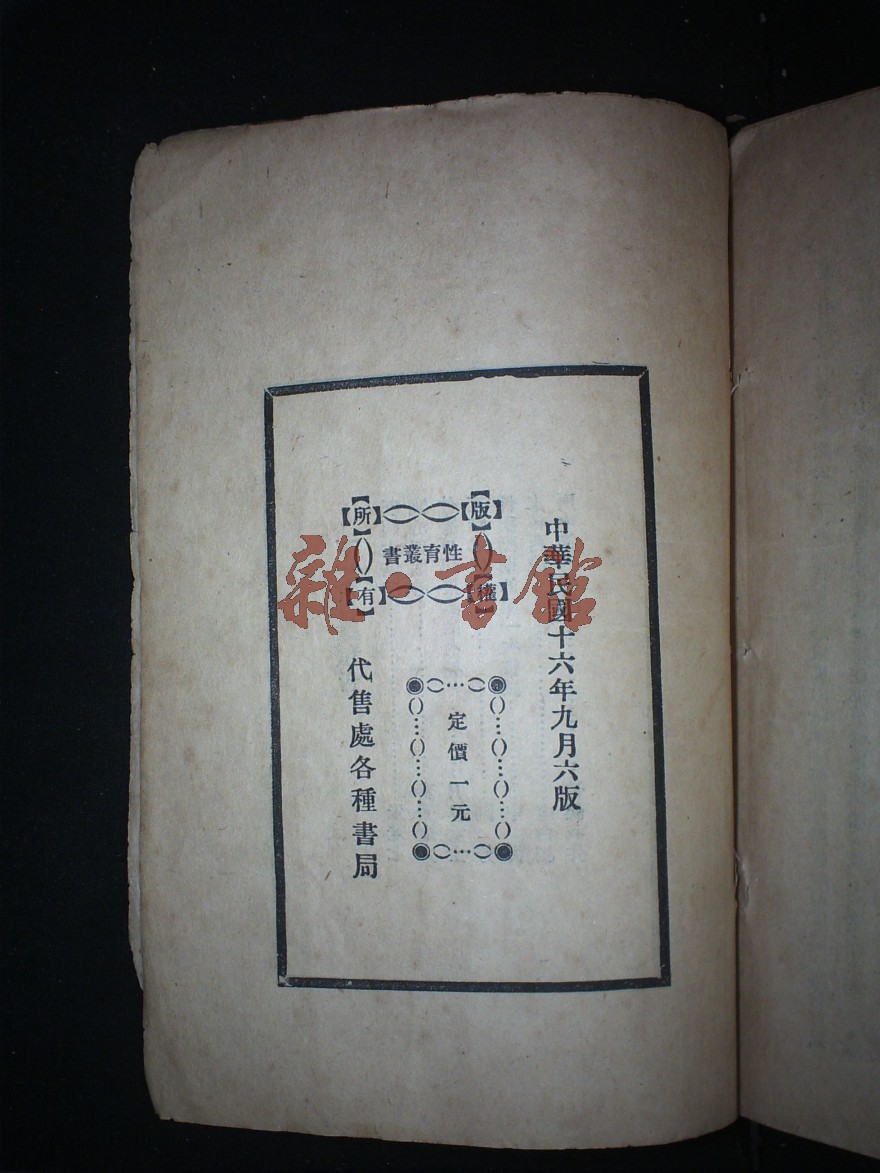 中華民國十六年九月六版
版權所有
性育叢書
定價一元
代售處各種書局
雜·書館